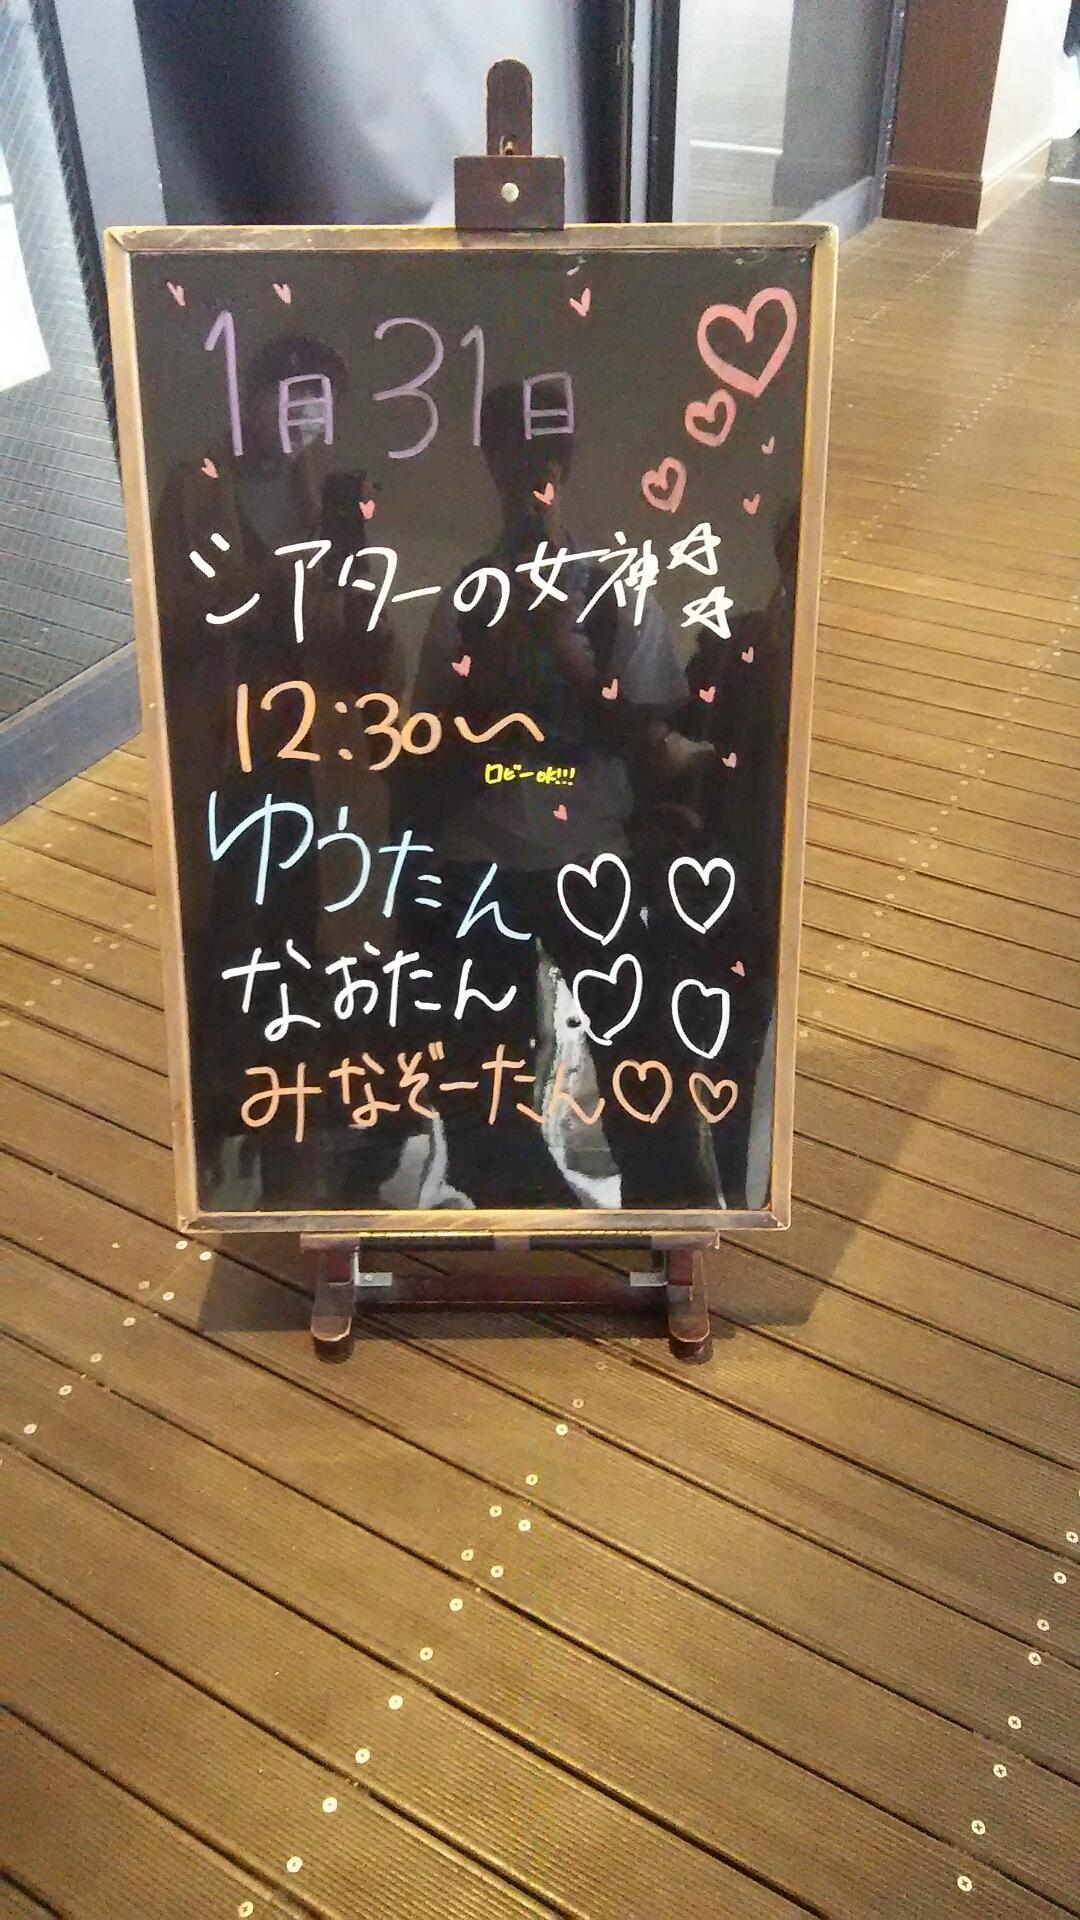 1月31日
シアターの女神☆☆
12:30〜
ロビーOK!!!
ゆうたん♡♡
なおたん♡♡
みなぞーたん♡♡